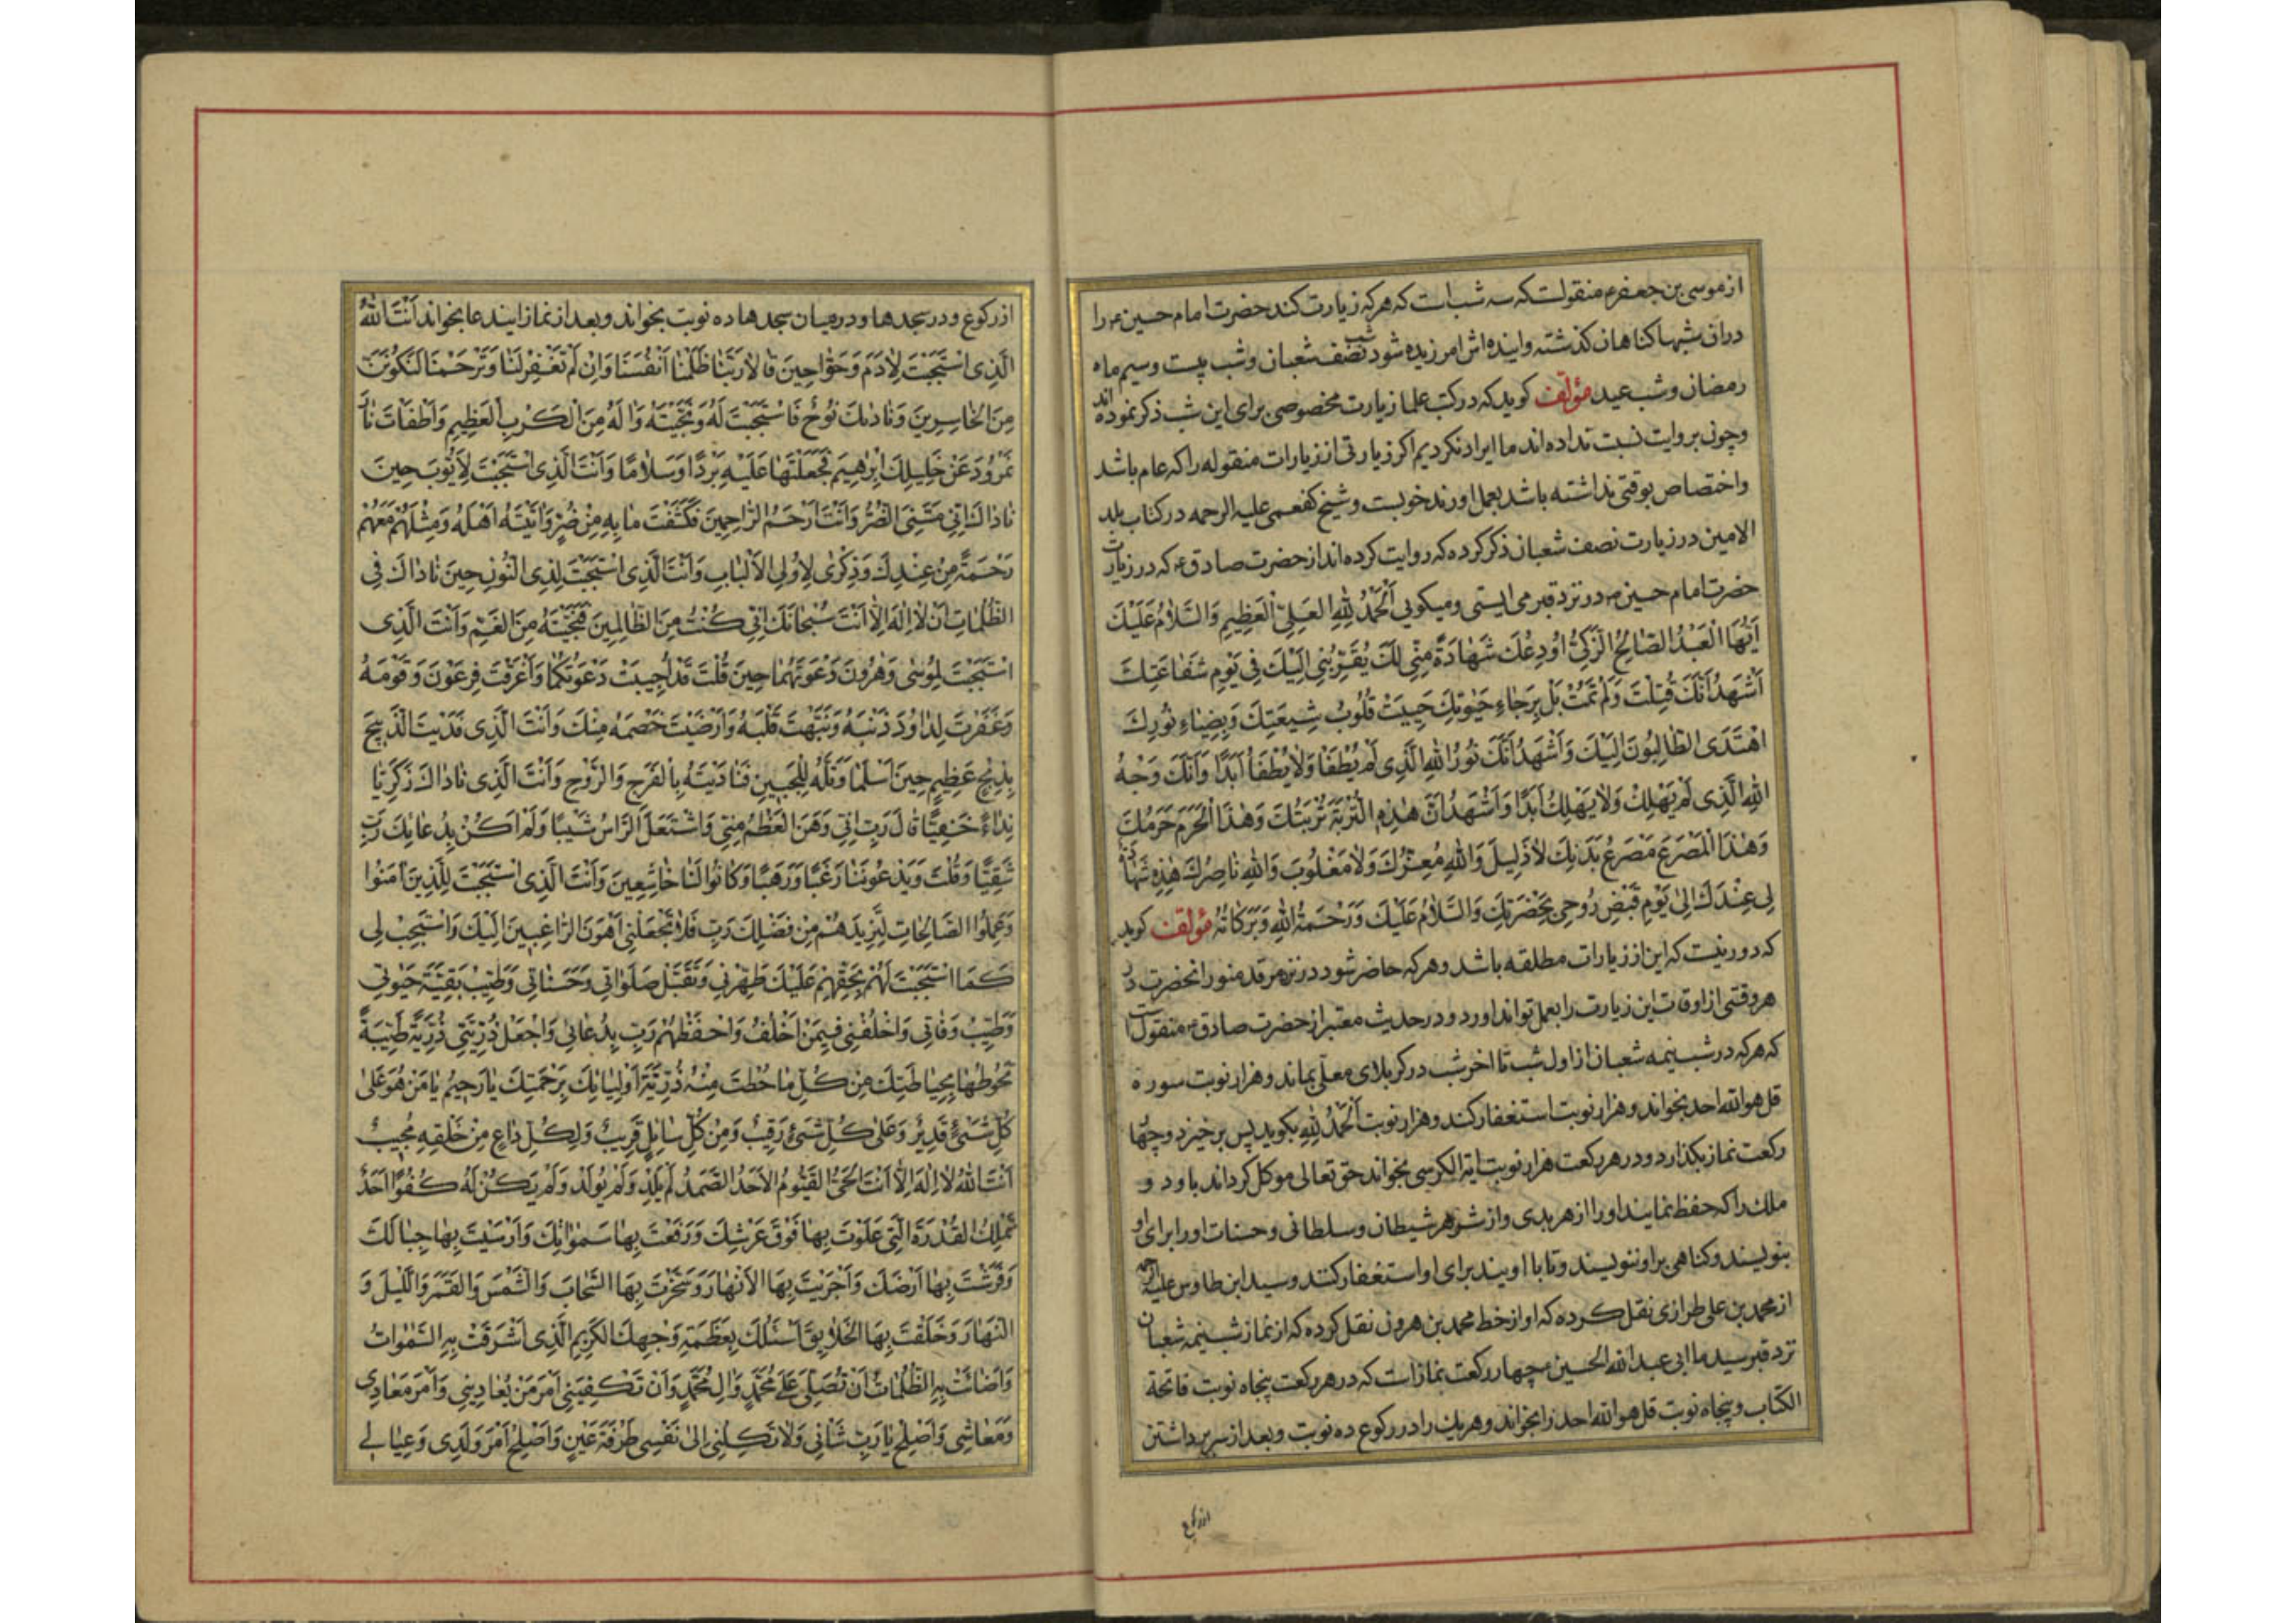 ازموسی بن جعفرع منقولست که سه شب است که هر که زیارت کند حضرت امام حسین ع را
دران شبها کناهان کذشته و اینده اش امرزیده شود شب نصف شعبان و شب بیست و سیم ماه
رمضان و شب عید مؤلف کوید که در کتب علما زیارت مخصوصی برای این شب ذکر نموده اند
و چون بروایت نسبت نداده اند ما ایراد نکردیم اکر زیارتی از زیارات منقوله را که عام باشد
و اختصاص بوقتی نداشته باشد بعمل اورند خوبست و شیخ کفعمی علیه الرحمه در کتاب بلد
الامین در زیارت نصف شعبان ذکر کرده که روایت کرده اند از حضرت صادق ع که در زیارت
حضرت امام حسین ع در نزد قبر می ایستی و میکویی اَلْحَمْدُ لِلّٰهِ الْعَلِیِّ الْعَظِیمِ وَالسَّلاٰمُ عَلَیْكَ
اَیُّهَا الْعَبْدُ الصّٰالِحُ الزَّکِیُّ اُودِعُكَ شَهٰادَةً مِنّی لَكَ یُقَرِّبُنی اِلَیْكَ فی یَوْمِ شَفٰاعَتِكَ
اَشْهَدُ اَنَّكَ قُتِلْتَ وَلَمْ تَمُتْ بَلْ بِرَجٰاءِ حَیٰوتِكَ حَیِیَتْ قُلُوبُ شِیعَتِكَ وَبِضِیٰاءِ نُورِكَ
اهْتَدَی الطّٰالِبُونَ اِلَیْكَ وَاَشْهَدُ اَنَّكَ نُورُ اللهِ الَّذی لَمْ یُطْفَأْ وَلاٰ یُطْفَأُ اَبَدًا وَاَنَّكَ وَجْهُ
اللهِ الَّذی لَمْ یَهْلِكْ وَلاٰ یَهْلِكُ اَبَدًا وَاَشْهَدُ اَنَّ هٰذِهِ التُّرْبَةَ تُرْبَتُكَ وَهٰذَا الْحَرَمَ حَرَمُكَ
وَهٰذَا الْمَصْرَعَ مَصْرَعُ بَدَنِكَ لاٰ ذَلِیلَ وَاللهِ مُعِزُّكَ وَلاٰ مَغْلُوبَ وَاللهِ نٰاصِرُكَ هٰذِهِ شَهٰادَةٌ
لی عِنْدَكَ اِلیٰ یَوْمِ قَبْضِ رُوحی بِحَضْرَتِكَ وَالسَّلاٰمُ عَلَیْكَ وَرَحْمَةُ اللهِ وَبَرَکٰاتُهُ مؤلف کوید
که دور نیست که این از زیارات مطلقه باشد و هر که حاضر شود در نزد مرقد منور انحضرت در
هر وقتی از اوقات این زیارت را بعمل تواند اورد و در حدیث معتبر از حضرت صادق ع منقول است
که هر که در شب نیمه شعبان از اول شب تا اخر شب در کربلای معلی بماند و هزار نوبت سوره
قل هو الله احد بخواند و هزار نوبت استغفار کند و هزار نوبت اَلْحَمْدُ لِلّٰهِ بکوید پس برخیزد و چهار
رکعت نماز بکذارد و در هر رکعت هزار نوبت ایة الکرسی بخواند حق تعالی موکل کرداند باو دو
ملك را که حفظ نمایند او را از هر بدی و از شر هر شیطان و سلطانی و حسنات او را برای او
بنویسند و کناهی بر او ننویسند و تا با او یند برای او استغفار کنند و سید ابن طاوس علیه الرحمه
از محمد بن علی طرازی نقل کرده که او از خط محمد بن هرون نقل کرده که از نماز شب نیمه شعبان
نزد قبر سید ما ابی عبد الله الحسین ع چهار رکعت نماز است که در هر رکعت پنجاه نوبت فاتحة
الکتاب و پنجاه نوبت قل هو الله احد را بخواند و هر یك را در رکوع ده نوبت و بعد از سر برداشتن
از رکوع
از رکوع و در سجدها و در میان سجدها ده نوبت بخواند و بعد از نماز این دعا بخواند اَنْتَ اللهُ
الَّذی اسْتَجَبْتَ لِاٰدَمَ وَحَوّٰا حینَ قٰالاٰ رَبَّنٰا ظَلَمْنٰا اَنْفُسَنٰا وَاِنْ لَمْ تَغْفِرْ لَنٰا وَتَرْحَمْنٰا لَنَکُونَنَّ
مِنَ الْخٰاسِرینَ وَنٰادٰیكَ نُوحٌ فَاسْتَجَبْتَ لَهُ وَنَجَّیْتَهُ وَاٰلَهُ مِنَ الْکَرْبِ الْعَظِیمِ وَاَطْفَأْتَ نٰارَ
نَمْرُودَ عَنْ خَلِیلِكَ اِبْرٰهیمَ فَجَعَلْتَهٰا عَلَیْهِ بَرْدًا وَسَلاٰمًا وَاَنْتَ الَّذی اسْتَجَبْتَ لِاَیُّوبَ حینَ
نٰادٰاكَ اَنّی مَسَّنِیَ الضُّرُّ وَاَنْتَ اَرْحَمُ الرّٰاحِمینَ فَکَشَفْتَ مٰا بِهِ مِنْ ضُرٍّ وَاٰتَیْتَهُ اَهْلَهُ وَمِثْلَهُمْ مَعَهُمْ
رَحْمَةً مِنْ عِنْدِكَ وَذِکْریٰ لِاُولِی الْاَلْبٰابِ وَاَنْتَ الَّذی اسْتَجَبْتَ لِذِی النُّونِ حینَ نٰادٰاكَ فِی
الظُّلُمٰاتِ اَنْ لاٰ اِلٰهَ اِلاّٰ اَنْتَ سُبْحٰانَكَ اِنّی کُنْتُ مِنَ الظّٰالِمینَ فَنَجَّیْتَهُ مِنَ الْغَمِّ وَاَنْتَ الَّذی
اسْتَجَبْتَ لِمُوسٰی وَهٰرُونَ دَعْوَتَهُمٰا حینَ قُلْتَ قَدْ اُجیبَتْ دَعْوَتُکُمٰا وَاَغْرَقْتَ فِرْعَوْنَ وَقَوْمَهُ
وَغَفَرْتَ لِدٰاوُدَ ذَنْبَهُ وَنَبَّهْتَ قَلْبَهُ وَاَرْضَیْتَ خَصْمَهُ مِنْكَ وَاَنْتَ الَّذی فَدَیْتَ الذَّبیحَ
بِذِبْحٍ عَظِیمٍ حینَ اَسْلَمٰا وَتَلَّهُ لِلْجَبینِ فَنٰادَیْتَهُ بِالْفَرَجِ وَالرَّوْحِ وَاَنْتَ الَّذی نٰادٰاكَ زَکَرِیّٰا
نِدٰاءً خَفِیًّا قٰالَ رَبِّ اِنّی وَهَنَ الْعَظْمُ مِنّی وَاشْتَعَلَ الرَّاْسُ شَیْبًا وَلَمْ اَکُنْ بِدُعٰائِكَ رَبِّ
شَقِیًّا وَقُلْتَ وَیَدْعُونَنٰا رَغَبًا وَرَهَبًا وَکٰانُوا لَنٰا خٰاشِعینَ وَاَنْتَ الَّذی اسْتَجَبْتَ لِلَّذینَ اٰمَنُوا
وَعَمِلُوا الصّٰالِحٰاتِ لِتَزیدَهُمْ مِنْ فَضْلِكَ رَبِّ فَلاٰ تَجْعَلْنی اَهْوَنَ الرّٰاغِبینَ اِلَیْكَ وَاسْتَجِبْ لی
کَمَا اسْتَجَبْتَ لَهُمْ بِحَقِّهِمْ عَلَیْكَ طَهِّرْنی وَتَقَبَّلْ صَلَوٰاتی وَحَسَنٰاتی وَطَیِّبْ بَقِیَّةَ حَیٰوتی
وَطَیِّبْ وَفٰاتی وَاخْلُفْنی فیمَنْ اَخْلُفُ وَاحْفَظْهُمْ رَبِّ بِدُعٰائی وَاجْعَلْ ذُرِّیَّتی ذُرِّیَّةً طَیِّبَةً
تَحُوطُهٰا بِحِیٰاطَتِكَ مِنْ کُلِّ مٰا حُطْتَ مِنْهُ ذُرِّیَّةَ اَوْلِیٰائِكَ بِرَحْمَتِكَ یٰا رَحِیمُ یٰا مَنْ هُوَ عَلیٰ
کُلِّ شَیْءٍ قَدیرٌ وَعَلیٰ کُلِّ شَیْءٍ رَقیبٌ وَمِنْ کُلِّ سٰائِلٍ قَریبٌ وَلِکُلِّ دٰاعٍ مِنْ خَلْقِهِ مُجیبٌ
اَنْتَ اللهُ لاٰ اِلٰهَ اِلاّٰ اَنْتَ الْحَیُّ الْقَیُّومُ الْاَحَدُ الصَّمَدُ لَمْ یَلِدْ وَلَمْ یُولَدْ وَلَمْ یَکُنْ لَهُ کُفُوًا اَحَدٌ
تَمْلِكُ الْقُدْرَةَ الَّتی عَلَوْتَ بِهٰا فَوْقَ عَرْشِكَ وَرَفَعْتَ بِهٰا سَمٰوٰاتِكَ وَاَرْسَیْتَ بِهٰا جِبٰالَكَ
وَفَرَشْتَ بِهٰا اَرْضَكَ وَاَجْرَیْتَ بِهَا الْاَنْهٰارَ وَسَخَّرْتَ بِهَا السَّحٰابَ وَالشَّمْسَ وَالْقَمَرَ وَاللَّیْلَ وَ
النَّهٰارَ وَخَلَقْتَ بِهَا الْخَلاٰئِقَ اَسْئَلُكَ بِعَظَمَةِ وَجْهِكَ الْکَریمِ الَّذی اَشْرَقَتْ بِهِ السَّمٰوٰاتُ
وَاَضٰائَتْ بِهِ الظُّلُمٰاتُ اَنْ تُصَلِّیَ عَلیٰ مُحَمَّدٍ وَاٰلِ مُحَمَّدٍ وَاَنْ تَکْفِیَنی اَمْرَ مَنْ یُعٰادینی وَاَمْرَ مَعٰادی
وَمَعٰاشی وَاَصْلِحْ یٰا رَبِّ شَاْنی وَلاٰ تَکِلْنی اِلیٰ نَفْسی طَرْفَةَ عَیْنٍ وَاَصْلِحْ اَمْرَ وَلَدی وَعِیٰالی